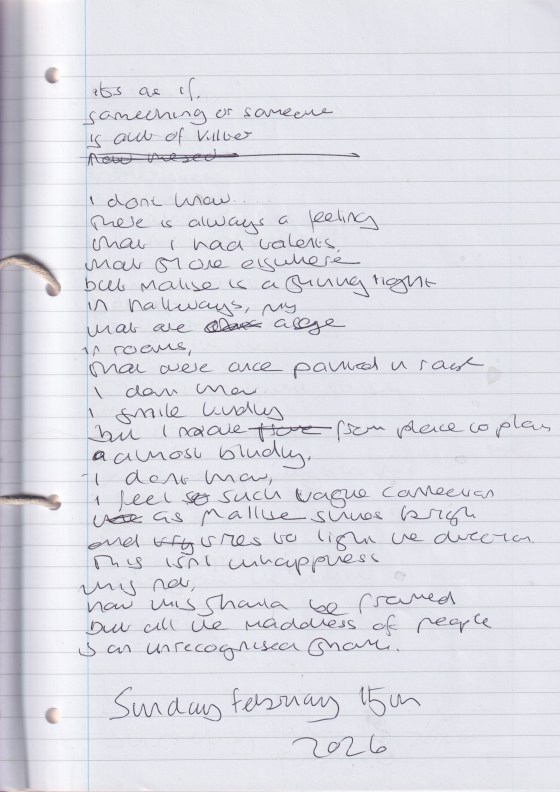 its as if.
something or someone
is out of kilter
I dont know..
there is always a feeling
that I had talents,
that shone elsewhere
but malise is a shining light
in hallways,
that are
in rooms,
that were once painted in
I dont know
I smile kindly
but I move from place to place
almost blindly.
I dont know,
I feel such vague connection
as mallise shines bright
and tries to light the direction
this isnt unhappiness
this not,
how this should be framed
but all the maddness of people
is an unrecognised
Sunday February 15th
2026